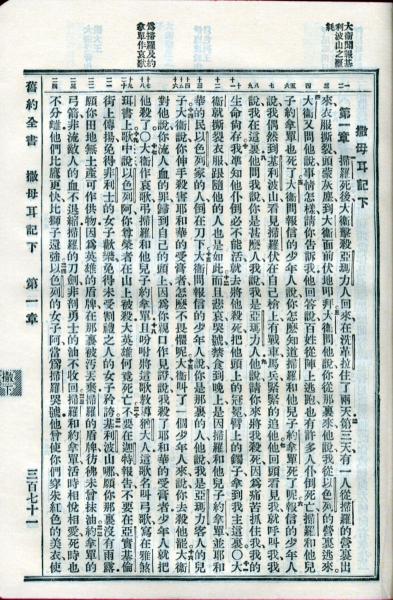 大衛聞報基利波山之歷耗
爲掃羅及約拿單作哀歌
撒母耳記下
第一章 掃羅死後大衛擊殺亞瑪力人回來在洗革拉住了兩天第三天有一人從掃羅的營裏出
來衣服撕裂頭蒙灰塵到大衛面前伏地叩拜大衛問他說你從那裏來他說我從以色列的營裏逃來
大衛又問他說事情怎樣請你告訴我他回答說百姓從陣上逃跑也有許多人仆倒死亡掃羅和他兒
子約拿單也死了大衛問報信的少年人說你怎麼知道掃羅和他兒子約拿單死了呢報信的少年人
說我偶然到基利波山看見掃羅伏在自己槍上有戰車馬兵緊緊的追他他回頭看見我就呼叫我我
說我在這裏他問我說你是甚麼人我說我是亞瑪力人他說請你來將我殺死因爲痛苦抓住我我的
生命尚存我準知他仆倒必不能活就去將他殺死把他頭上的冠冕臂上的鐲子拿到我主這裏〇大
衛就撕裂衣服跟隨他的人也是如此而且悲哀哭號禁食到晚上是因掃羅和他兒子約拿單並耶和
華的民以色列家的人倒在刀下大衛問報信的少年人說你是那裏的人他說我是亞瑪力客人的兒
子大衛說你伸手殺害耶和華的受膏者怎麼不畏懼呢大衛叫了一個少年人來說你去殺他罷大衛
對他說你流人血的罪歸到自己的頭上因爲你親口作見證說我殺了耶和華的受膏者少年人就把
他殺了〇大衛作哀歌弔掃羅和他兒子約拿單且吩咐將這歌教導猶大人這歌名叫弓歌寫在雅煞
珥書上歌中說以色列阿你尊榮者在山上被殺大英雄何竟死亡不要在迦特報告不要在亞實基倫
街上傳揚免得非利士的女子歡樂免得未受割禮之人的女子矜誇基利波山哪願你那裏沒有雨露
願你田地無土產可作供物因爲英雄的盾牌在那裏被污丟棄掃羅的盾牌彷彿未曾抹油約拿單的
弓箭非流敵人的血不退縮掃羅的刀劍非剖勇士的油不收回掃羅和約拿單活時相悅相愛死時也
不分離他們比鷹更快比獅子還強以色列的女子阿當爲掃羅哭號他曾使你們穿朱紅色的美衣使
舊約全書 撒母耳記下 第一章 三百七十一
撒下